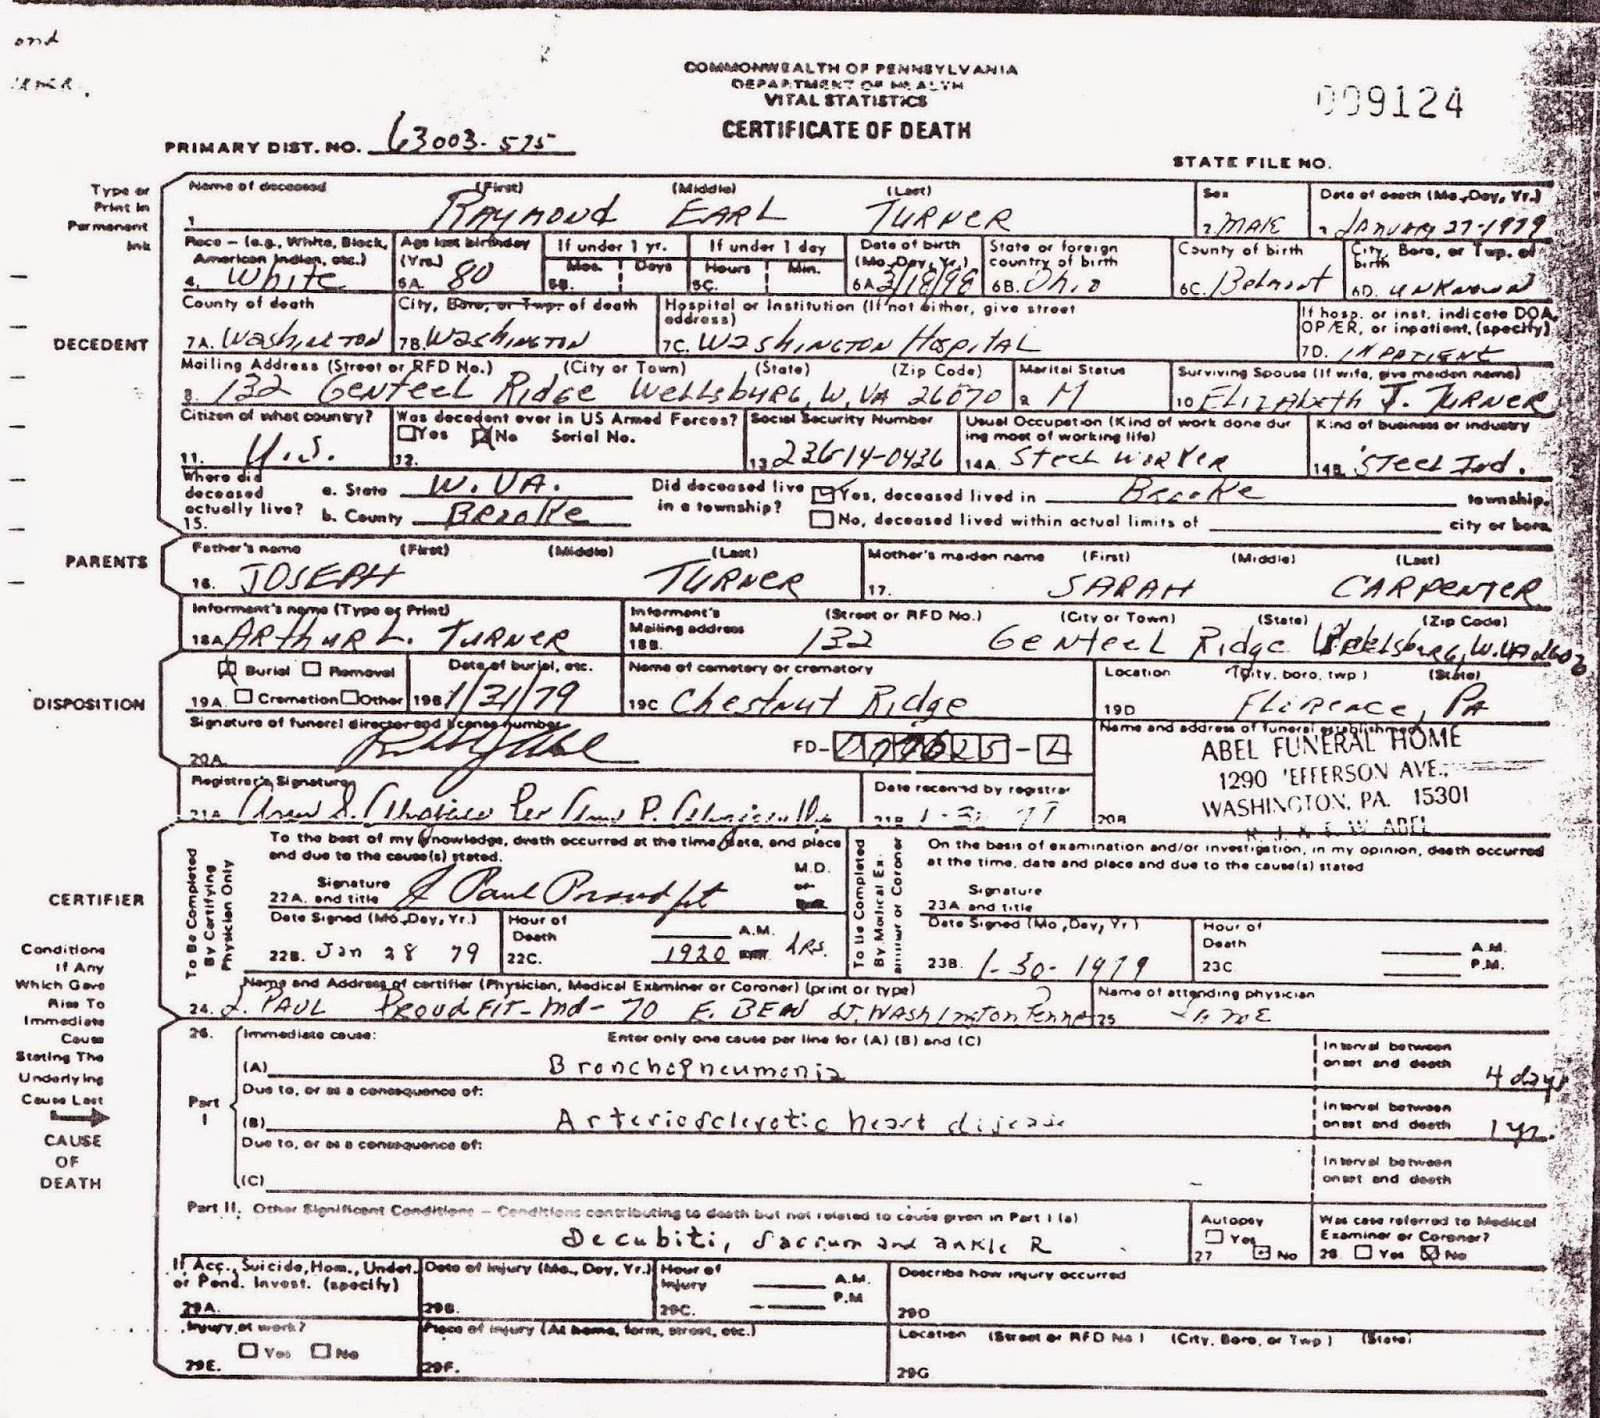 ond
COMMONWEALTH OF PENNSYLVANIA
DEPARTMENT OF HEALTH
VITAL STATISTICS
CERTIFICATE OF DEATH
009124
PRIMARY DIST. NO. 63003-575
STATE FILE NO.
Type or Print in Permanent Ink
Name of deceased (First) (Middle) (Last) Sex Date of death (Mo., Day, Yr.)
1. RAYMOND EARL TURNER 2. MALE 3. JANUARY 27-1979
Race – (e.g., White, Black, American Indian, etc.) Age last birthday (Yrs.) If under 1 yr. If under 1 day Date of birth (Mo., Day, Yr.) State or foreign country of birth County of birth City, Boro, or Twp. of birth
4. White 5A. 80 5B. Mos. Days 5C. Hours Min. 6A. 3/18/98 6B. Ohio 6C. Belmont 6D. UNKNOWN
DECEDENT
County of death City, Boro, or Twp. of death Hospital or Institution (If not either, give street address) If hosp. or inst. indicate DOA, OP/ER, or inpatient, (specify)
7A. WASHINGTON 7B. WASHINGTON 7C. WASHINGTON HOSPITAL 7D. INPATIENT
Mailing Address (Street or RFD No.) (City or Town) (State) (Zip Code) Marital Status Surviving Spouse (If wife, give maiden name)
8. 132 GENTEEL RIDGE WELLSBURG, W. VA 26070 9. M 10. ELIZABETH J. TURNER
Citizen of what country? Was decedent ever in US Armed Forces? Social Security Number Usual Occupation (Kind of work done during most of working life) Kind of business or industry
11. U.S. 12. Yes No Serial No. 13. 236-14-0436 14A. STEEL WORKER 14B. STEEL IND.
Where did deceased actually live? a. State W. VA. Did deceased live in a township? Yes, deceased lived in Brooke township.
15. b. County Brooke No, deceased lived within actual limits of city or boro.
PARENTS
Father's name (First) (Middle) (Last) Mother's maiden name (First) (Middle) (Last)
16. JOSEPH TURNER 17. SARAH CARPENTER
Informant's name (Type or Print) Informant's Mailing address (Street or RFD No.) (City or Town) (State) (Zip Code)
18A. ARTHUR L. TURNER 18B. 132 GENTEEL RIDGE WELLSBURG, W. VA 26070
DISPOSITION
Burial Removal Date of burial, etc. Name of cemetery or crematory Location (City, boro, twp) (State)
19A. Cremation Other 19B. 1/31/79 19C. Chestnut Ridge 19D. FLORENCE, PA
Signature of funeral director and license number Name and address of funeral establishment
20A. FD-
ABEL FUNERAL HOME
1290 JEFFERSON AVE.,
WASHINGTON, PA. 15301
20B.
Registrar's Signature Date received by registrar
21A. 21B.
CERTIFIER
To Be Completed By Certifying Physician Only
To the best of my knowledge, death occurred at the time, date, and place and due to the cause(s) stated. M.D. or
22A. Signature and title J Paul Proudfit
Date Signed (Mo., Day, Yr.) Hour of Death A.M.
22B. Jan 28 79 22C. 1920 hrs.
To Be Completed By Medical Examiner or Coroner
On the basis of examination and/or investigation, in my opinion, death occurred at the time, date and place and due to the cause(s) stated
23A. Signature and title
Date Signed (Mo., Day, Yr) Hour of Death A.M. P.M.
23B. 1-30-1979 23C.
Name and Address of certifier (Physician, Medical Examiner or Coroner) (print or type) Name of attending physician
24. J. PAUL PROUDFIT-MD-70 E. BEAU ST. WASHINGTON, Penna 25. SAME
Conditions If Any Which Gave Rise To Immediate Cause Stating The Underlying Cause Last
CAUSE OF DEATH
26. Immediate cause: Enter only one cause per line for (A) (B) and (C) Interval between onset and death
Part I
(A) Bronchopneumonia 4 days
Due to, or as a consequence of: Interval between onset and death
(B) Arteriosclerotic heart disease 1 yr.
Due to, or as a consequence of: Interval between onset and death
(C)
Part II. Other Significant Conditions – Conditions contributing to death but not related to cause given in Part I (a) Autopsy Was case referred to Medical Examiner or Coroner?
Decubiti, sacrum and ankle R 27. Yes No 28. Yes No
If Acc., Suicide, Hom., Undet. or Pend. Invest. (specify) Date of Injury (Mo., Day, Yr.) Hour of Injury A.M. P.M. Describe how injury occurred
29A. 29B. 29C. 29D
Injury at work? Place of injury (At home, farm, street, etc.) Location (Street or RFD No) (City, Boro, or Twp) (State)
29E. Yes No 29F. 29G